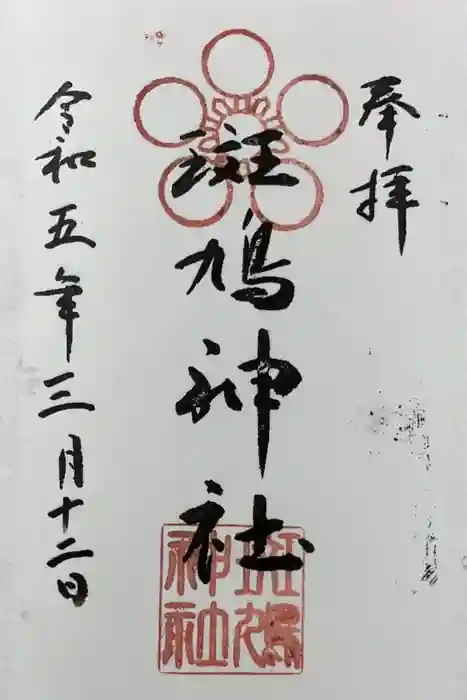 奉拝
斑鳩神社
令和五年三月十二日
斑鳩
神社